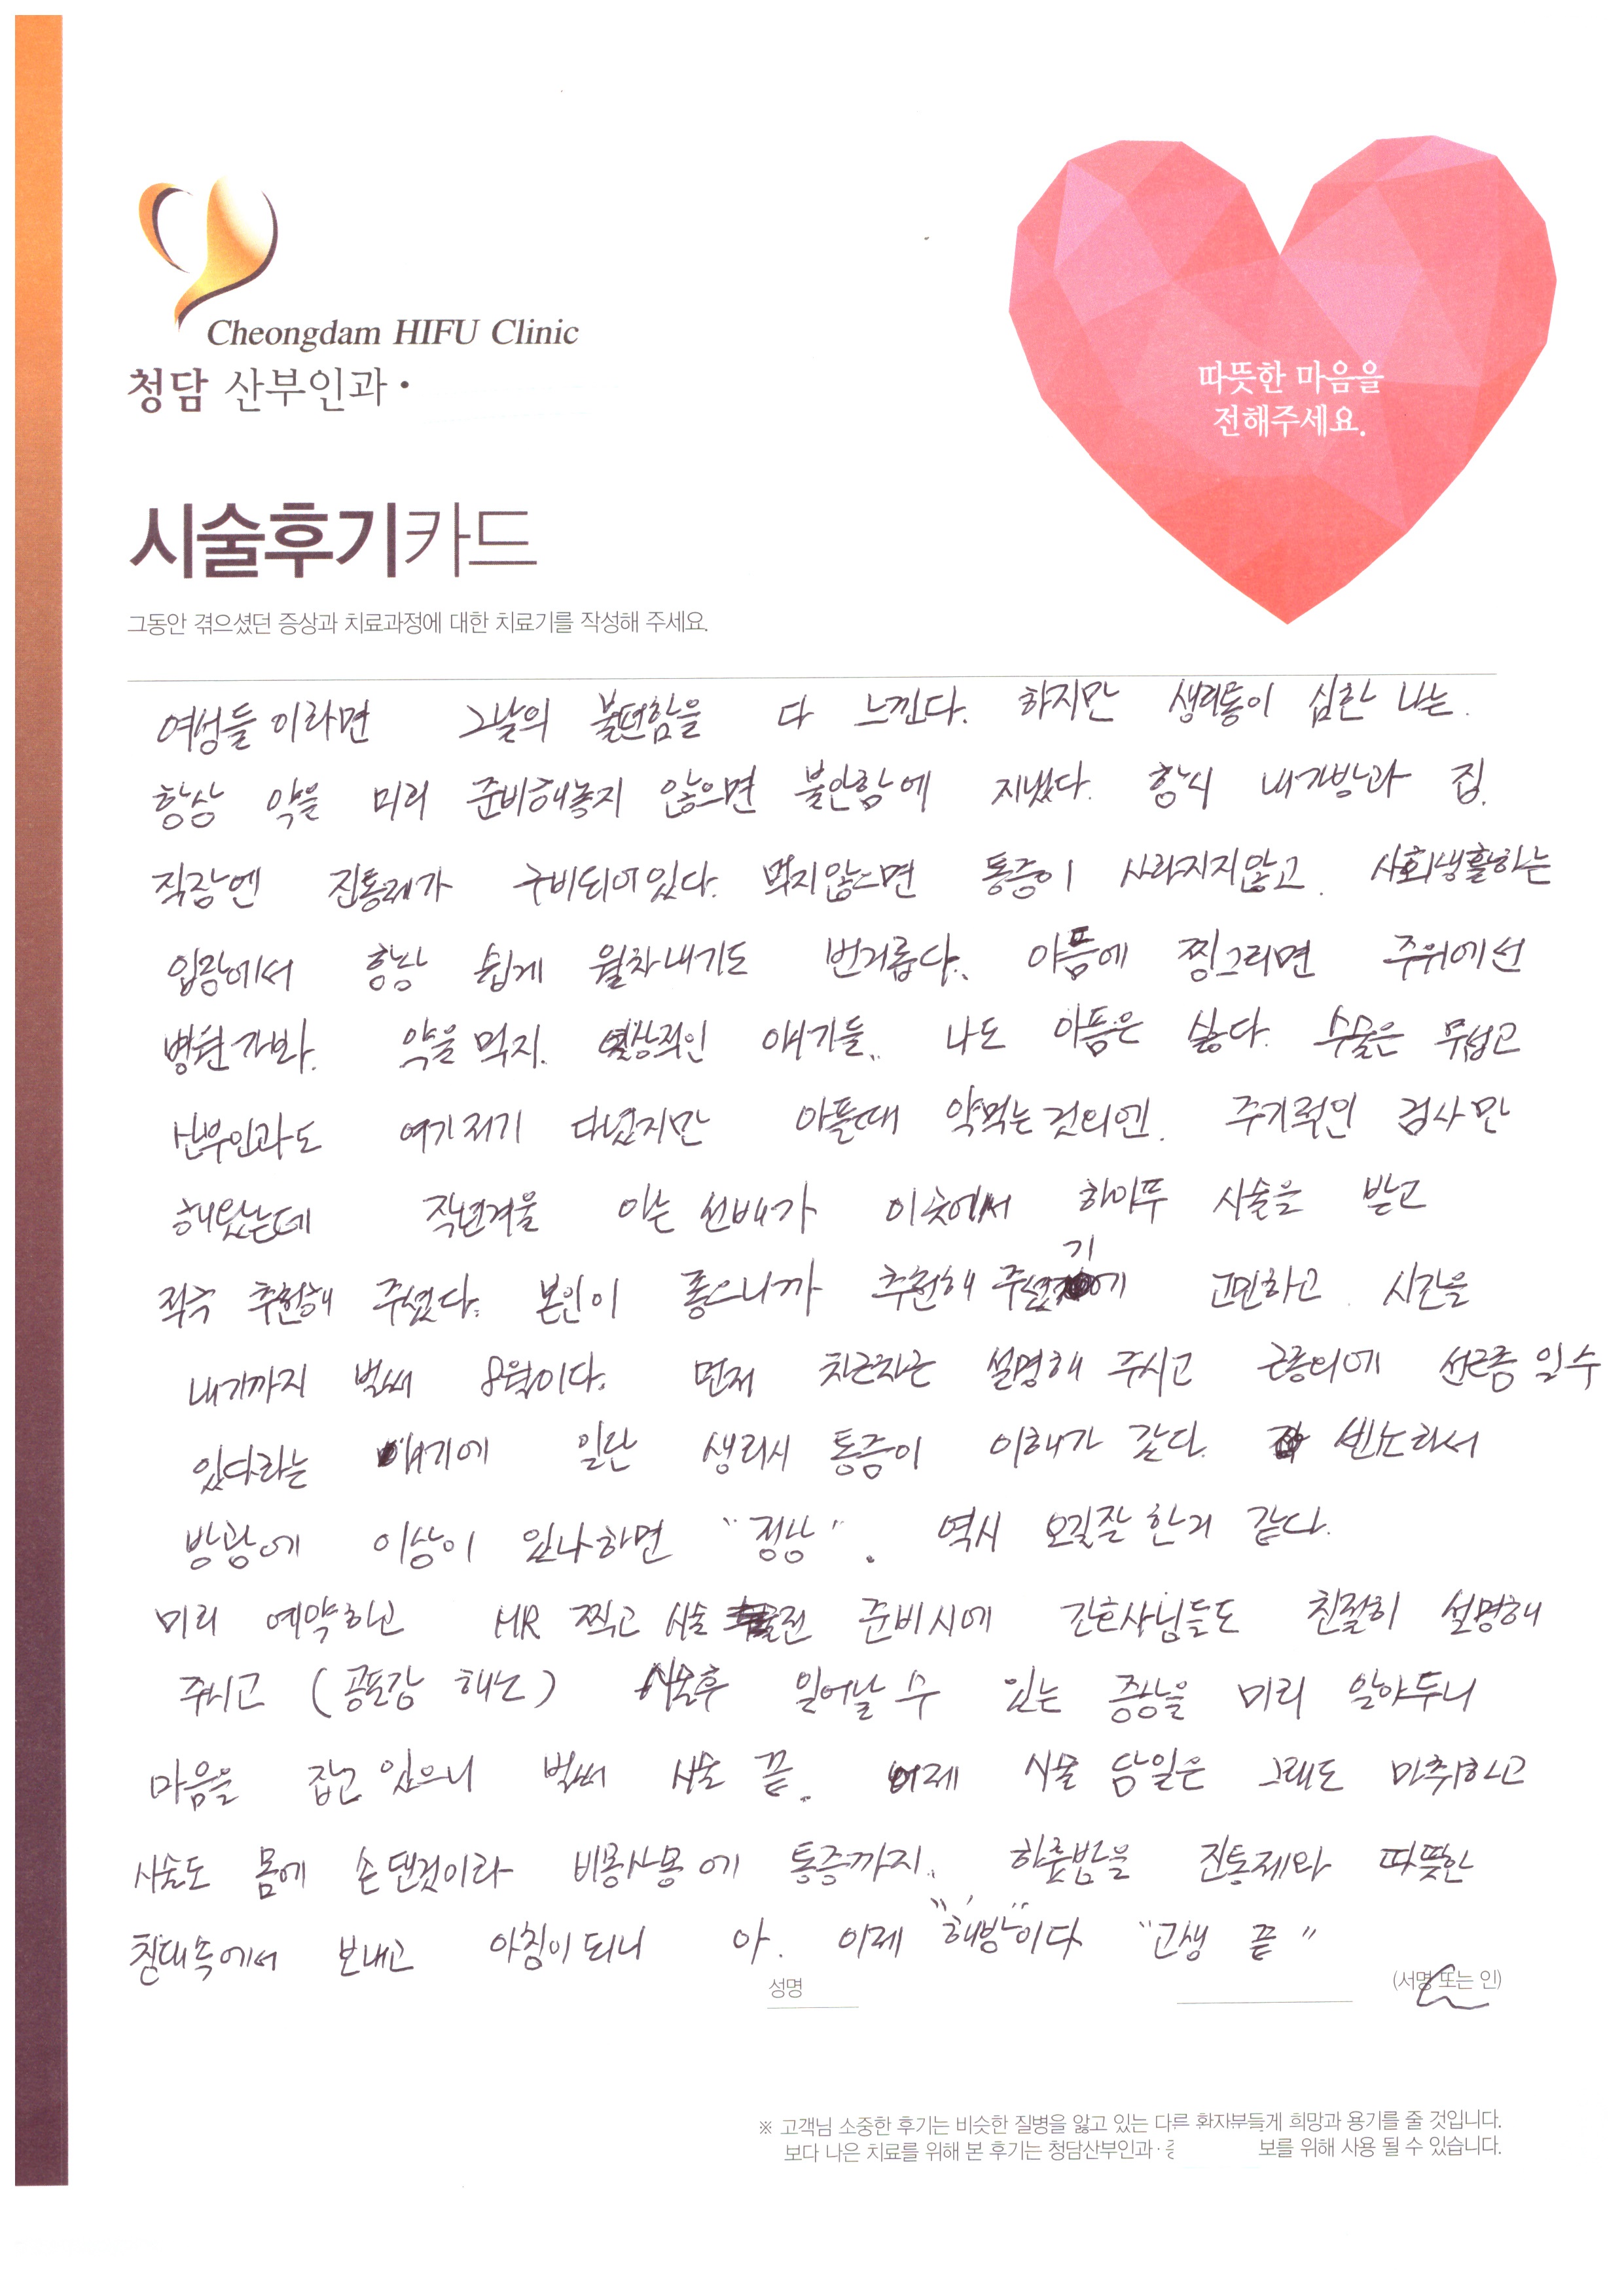 Cheongdam HIFU Clinic
청담 산부인과·
따뜻한 마음을
전해주세요.
시술후기카드
그동안 겪으셨던 증상과 치료과정에 대한 치료기를 작성해 주세요.
여성들 이라면 그날의 불편함을 다 느낀다. 하지만 생리통이 심한 나는.
항상 약을 미리 준비해놓지 않으면 불안함에 지냈다. 항시 내가방과 집.
직장엔 진통제가 구비되어있다. 먹지않으면 통증이 사라지지않고. 사회생활하는
입장에서 항상 쉽게 월차내기도 번거롭다. 아픔에 찡그리면 주위에선
병원가봐. 약을 먹지. 일상적인 얘기들.. 나도 아픔은 싫다. 수술은 무섭고
산부인과도 여기저기 다녔지만 아플때 약먹는것외엔. 주기적인 검사만
해왔는데 작년겨울 아는 선배가 이곳에서 하이푸 시술을 받고
적극 추천해 주셨다. 본인이 좋으니까 추천해 주셨기에 고민하고 시간을
내기까지 벌써 8월이다. 먼저 차근차근 설명해 주시고 근종외에 선근증 일수
있다라는 얘기에 일단 생리시 통증이 이해가 갔다. 빈소라서
방광에 이상이 있나하면 "정상". 역시 오길잘한거 같다.
미리 예약하고 MR 찍고 시술 전 준비시에 간호사님들도 친절히 설명해
주시고 (공포감 해소) 시술후 일어날 수 있는 증상을 미리 알아두니
마음을 잡고 있으니 벌써 시술 끝. 어제 시술 당일은 그래도 마취하고
시술도 몸에 손댄것이라 비몽사몽에 통증까지.. 하룻밤을 진통제와 따뜻한
침대속에서 보내고 아침이되니 아. 이제 "해방"이다 "고생 끝"
성명
(서명 또는 인)
※ 고객님 소중한 후기는 비슷한 질병을 앓고 있는 다른 환자분들게 희망과 용기를 줄 것입니다.
보다 나은 치료를 위해 본 후기는 청담산부인과· 보를 위해 사용 될 수 있습니다.